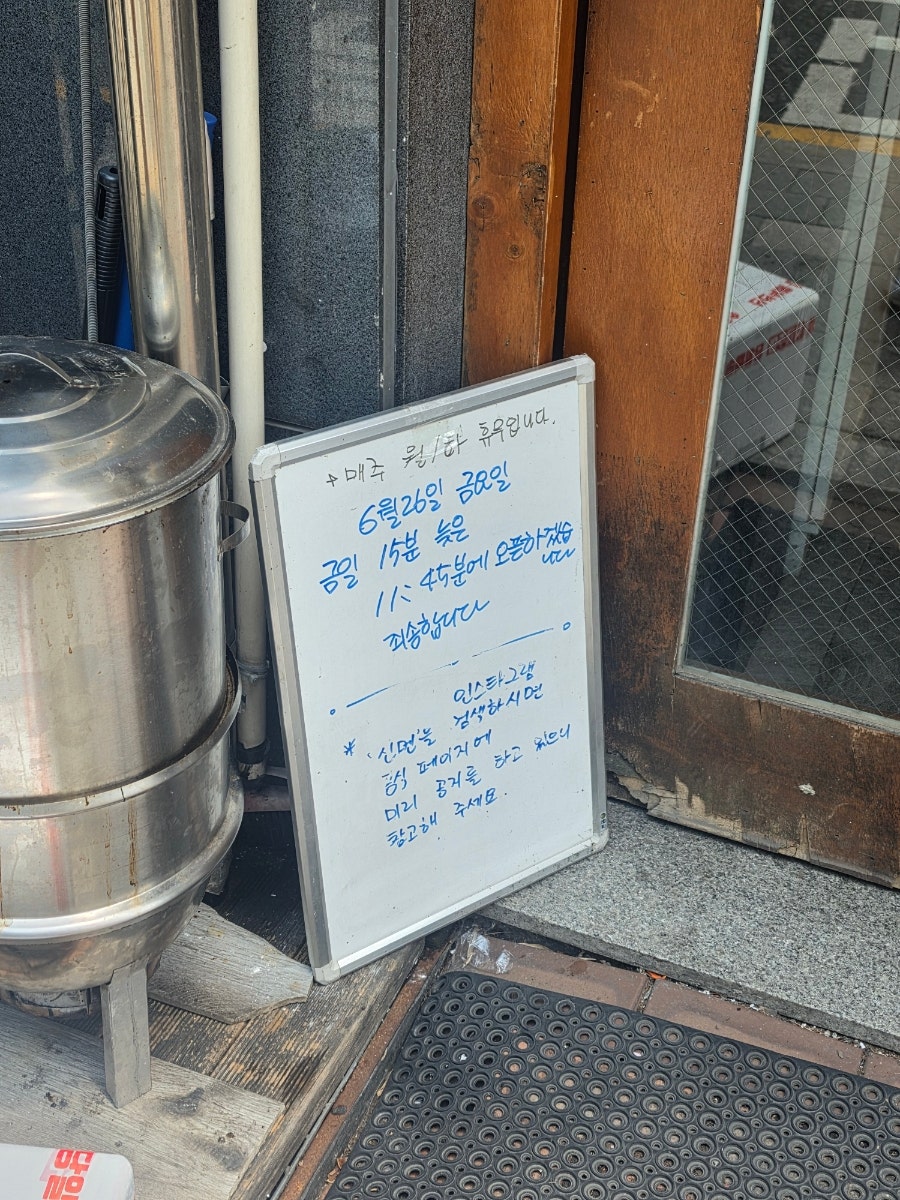 +매주 월/화 휴무입니다.
6월26일 금요일
금일 15분 늦은
11:45분에 오픈하겠습
니다
죄송합니다
인스타그램
* '신면'을 검색하시면
공식 페이지에
미리 공지를 하고 있으니
참고해 주세요.
당일